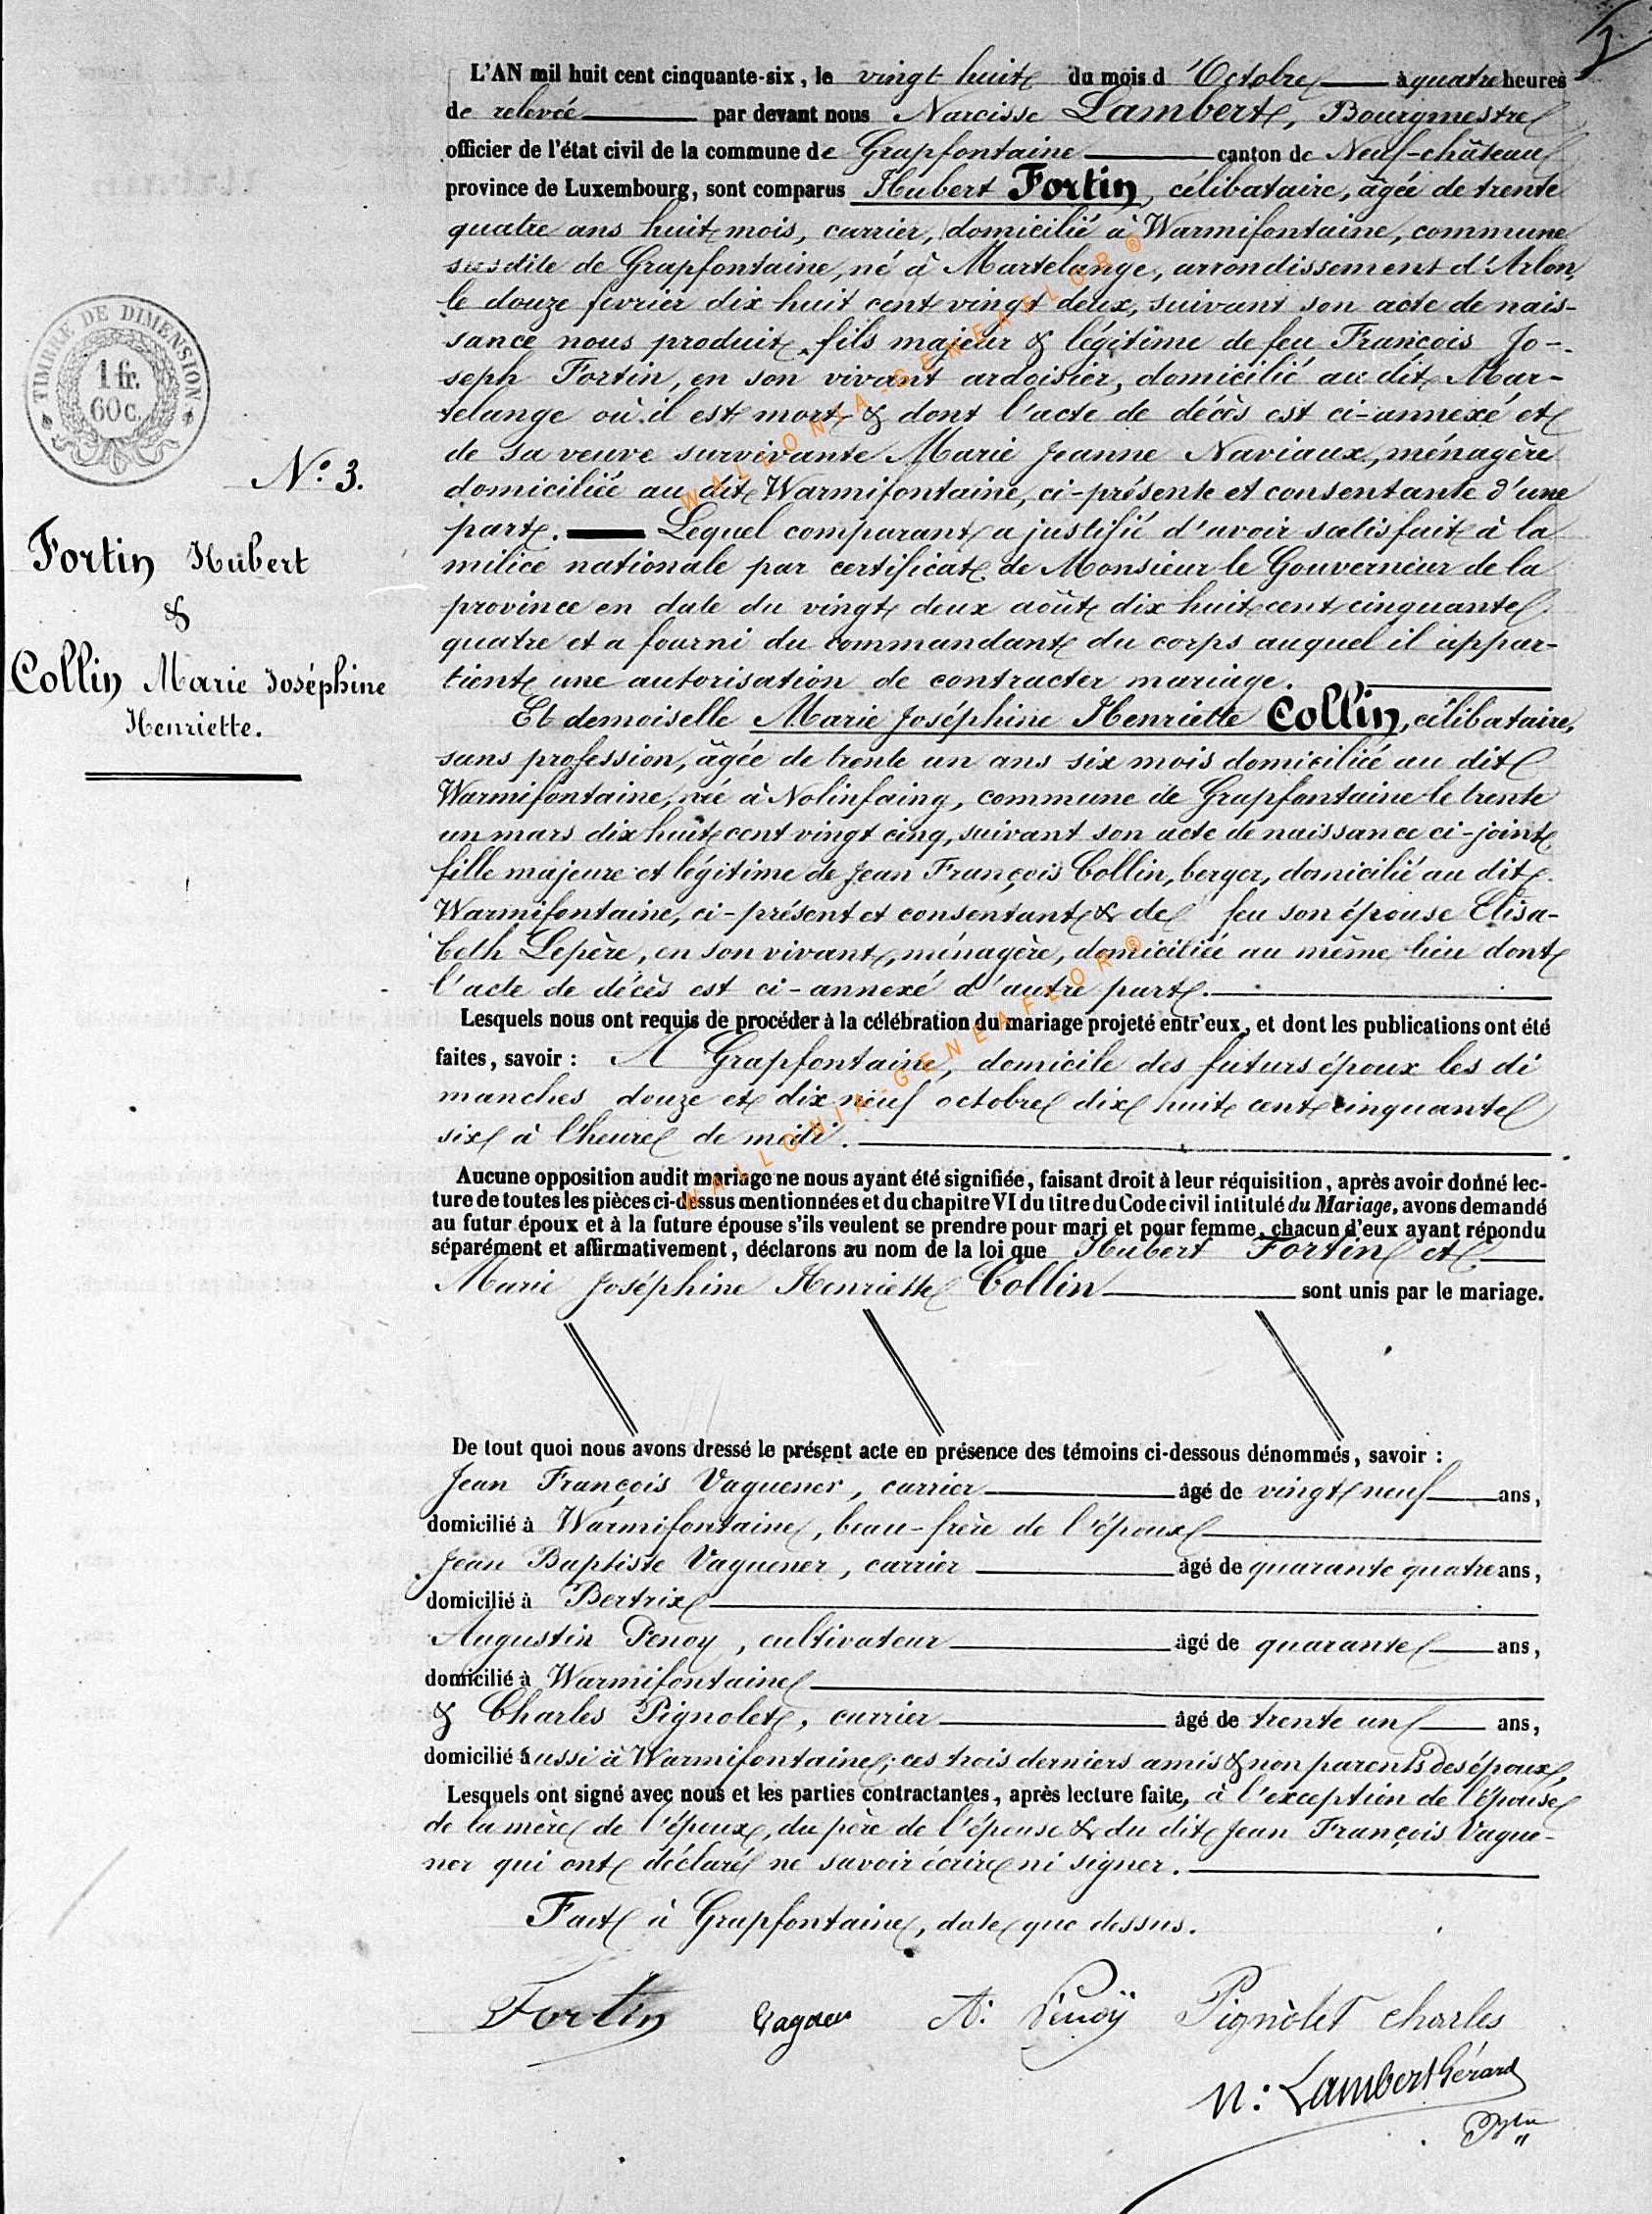 TIMBRE DE DIMENSION
1 fr.
60 c.
N.° 3.
Fortin Hubert
&
Collin Marie Joséphine
Henriette.
L'AN mil huit cent cinquante-six, le vingt huit du mois d'Octobre à quatre heures
de relevée par devant nous Narcisse Lambert, Bourgmestre
officier de l'état civil de la commune de Grapfontaine canton de Neuf-château
province de Luxembourg, sont comparus Hubert Fortin, célibataire, âgée de trente
quatre ans huit mois, carrier, domicilié à Warmifontaine, commune
susdite de Grapfontaine, né à Martelange, arrondissement d'Arlon,
le douze fevrier dix huit cent vingt deux, suivant son acte de nais-
sance nous produit, fils majeur & légitime de feu François Jo-
seph Fortin, en son vivant ardoisier, domicilié au dit Mar-
telange où il est mort & dont l'acte de décès est ci-annexé et
de sa veuve survivante Marie Jeanne Naviaux, ménagère
domiciliée au dit Warmifontaine, ci-présente et consentante d'une
part. Lequel comparant a justifié d'avoir satisfait à la
milice nationale par certificat de Monsieur le Gouverneur de la
province en date du vingt deux août dix huit cent cinquante
quatre et a fourni du commandant du corps auquel il appar-
tient une autorisation de contracter mariage.
Et demoiselle Marie Joséphine Henriette Collin, célibataire,
sans profession, âgée de trente un ans six mois domiciliée au dit
Warmifontaine, née à Nolinfaing, commune de Grapfontaine le trente
un mars dix huit cent vingt cinq, suivant son acte de naissance ci-joint
fille majeure et légitime de Jean François Collin, berger, domicilié au dit
Warmifontaine, ci-présent et consentant & de feu son épouse Elisa-
beth Lepère, en son vivant, ménagère, domiciliée au même lieu dont
l'acte de décès est ci-annexé d'autre part.
Lesquels nous ont requis de procéder à la célébration du mariage projeté entr'eux, et dont les publications ont été
faites, savoir : A Grapfontaine, domicile des futurs époux les di
manches douze et dix neuf octobre dix huit cent cinquante
six à l'heure de midi.
Aucune opposition audit mariage ne nous ayant été signifiée, faisant droit à leur réquisition, après avoir donné lec-
ture de toutes les pièces ci-dessus mentionnées et du chapitre VI du titre du Code civil intitulé du Mariage, avons demandé
au futur époux et à la future épouse s'ils veulent se prendre pour mari et pour femme, chacun d'eux ayant répondu
séparément et affirmativement, déclarons au nom de la loi que Hubert Fortin et
Marie Joséphine Henriette Collin sont unis par le mariage.
De tout quoi nous avons dressé le présent acte en présence des témoins ci-dessous dénommés, savoir :
Jean François Vaguener, carrier âgé de vingt neuf ans,
domicilié à Warmifontaine, beau-frère de l'époux
Jean Baptiste Vaguener, carrier âgé de quarante quatre ans,
domicilié à Bertrix
Augustin Penoy, cultivateur âgé de quarante ans,
domicilié à Warmifontaine
& Charles Pignolet, carrier âgé de trente un ans,
domicilié aussi à Warmifontaine; ces trois derniers amis & non parents des époux,
Lesquels ont signé avec nous et les parties contractantes, après lecture faite, à l'exception de l'épouse
de la mère de l'époux, du père de l'épouse & du dit Jean François Vague-
ner qui ont déclaré ne savoir écrire ni signer.
Fait à Grapfontaine, date que dessus.
Fortin A. Penoÿ Pignolet charles
N: Lambert Gérard
WALLONIA-GENEAFLOR®
WALLONIA-GENEAFLOR®